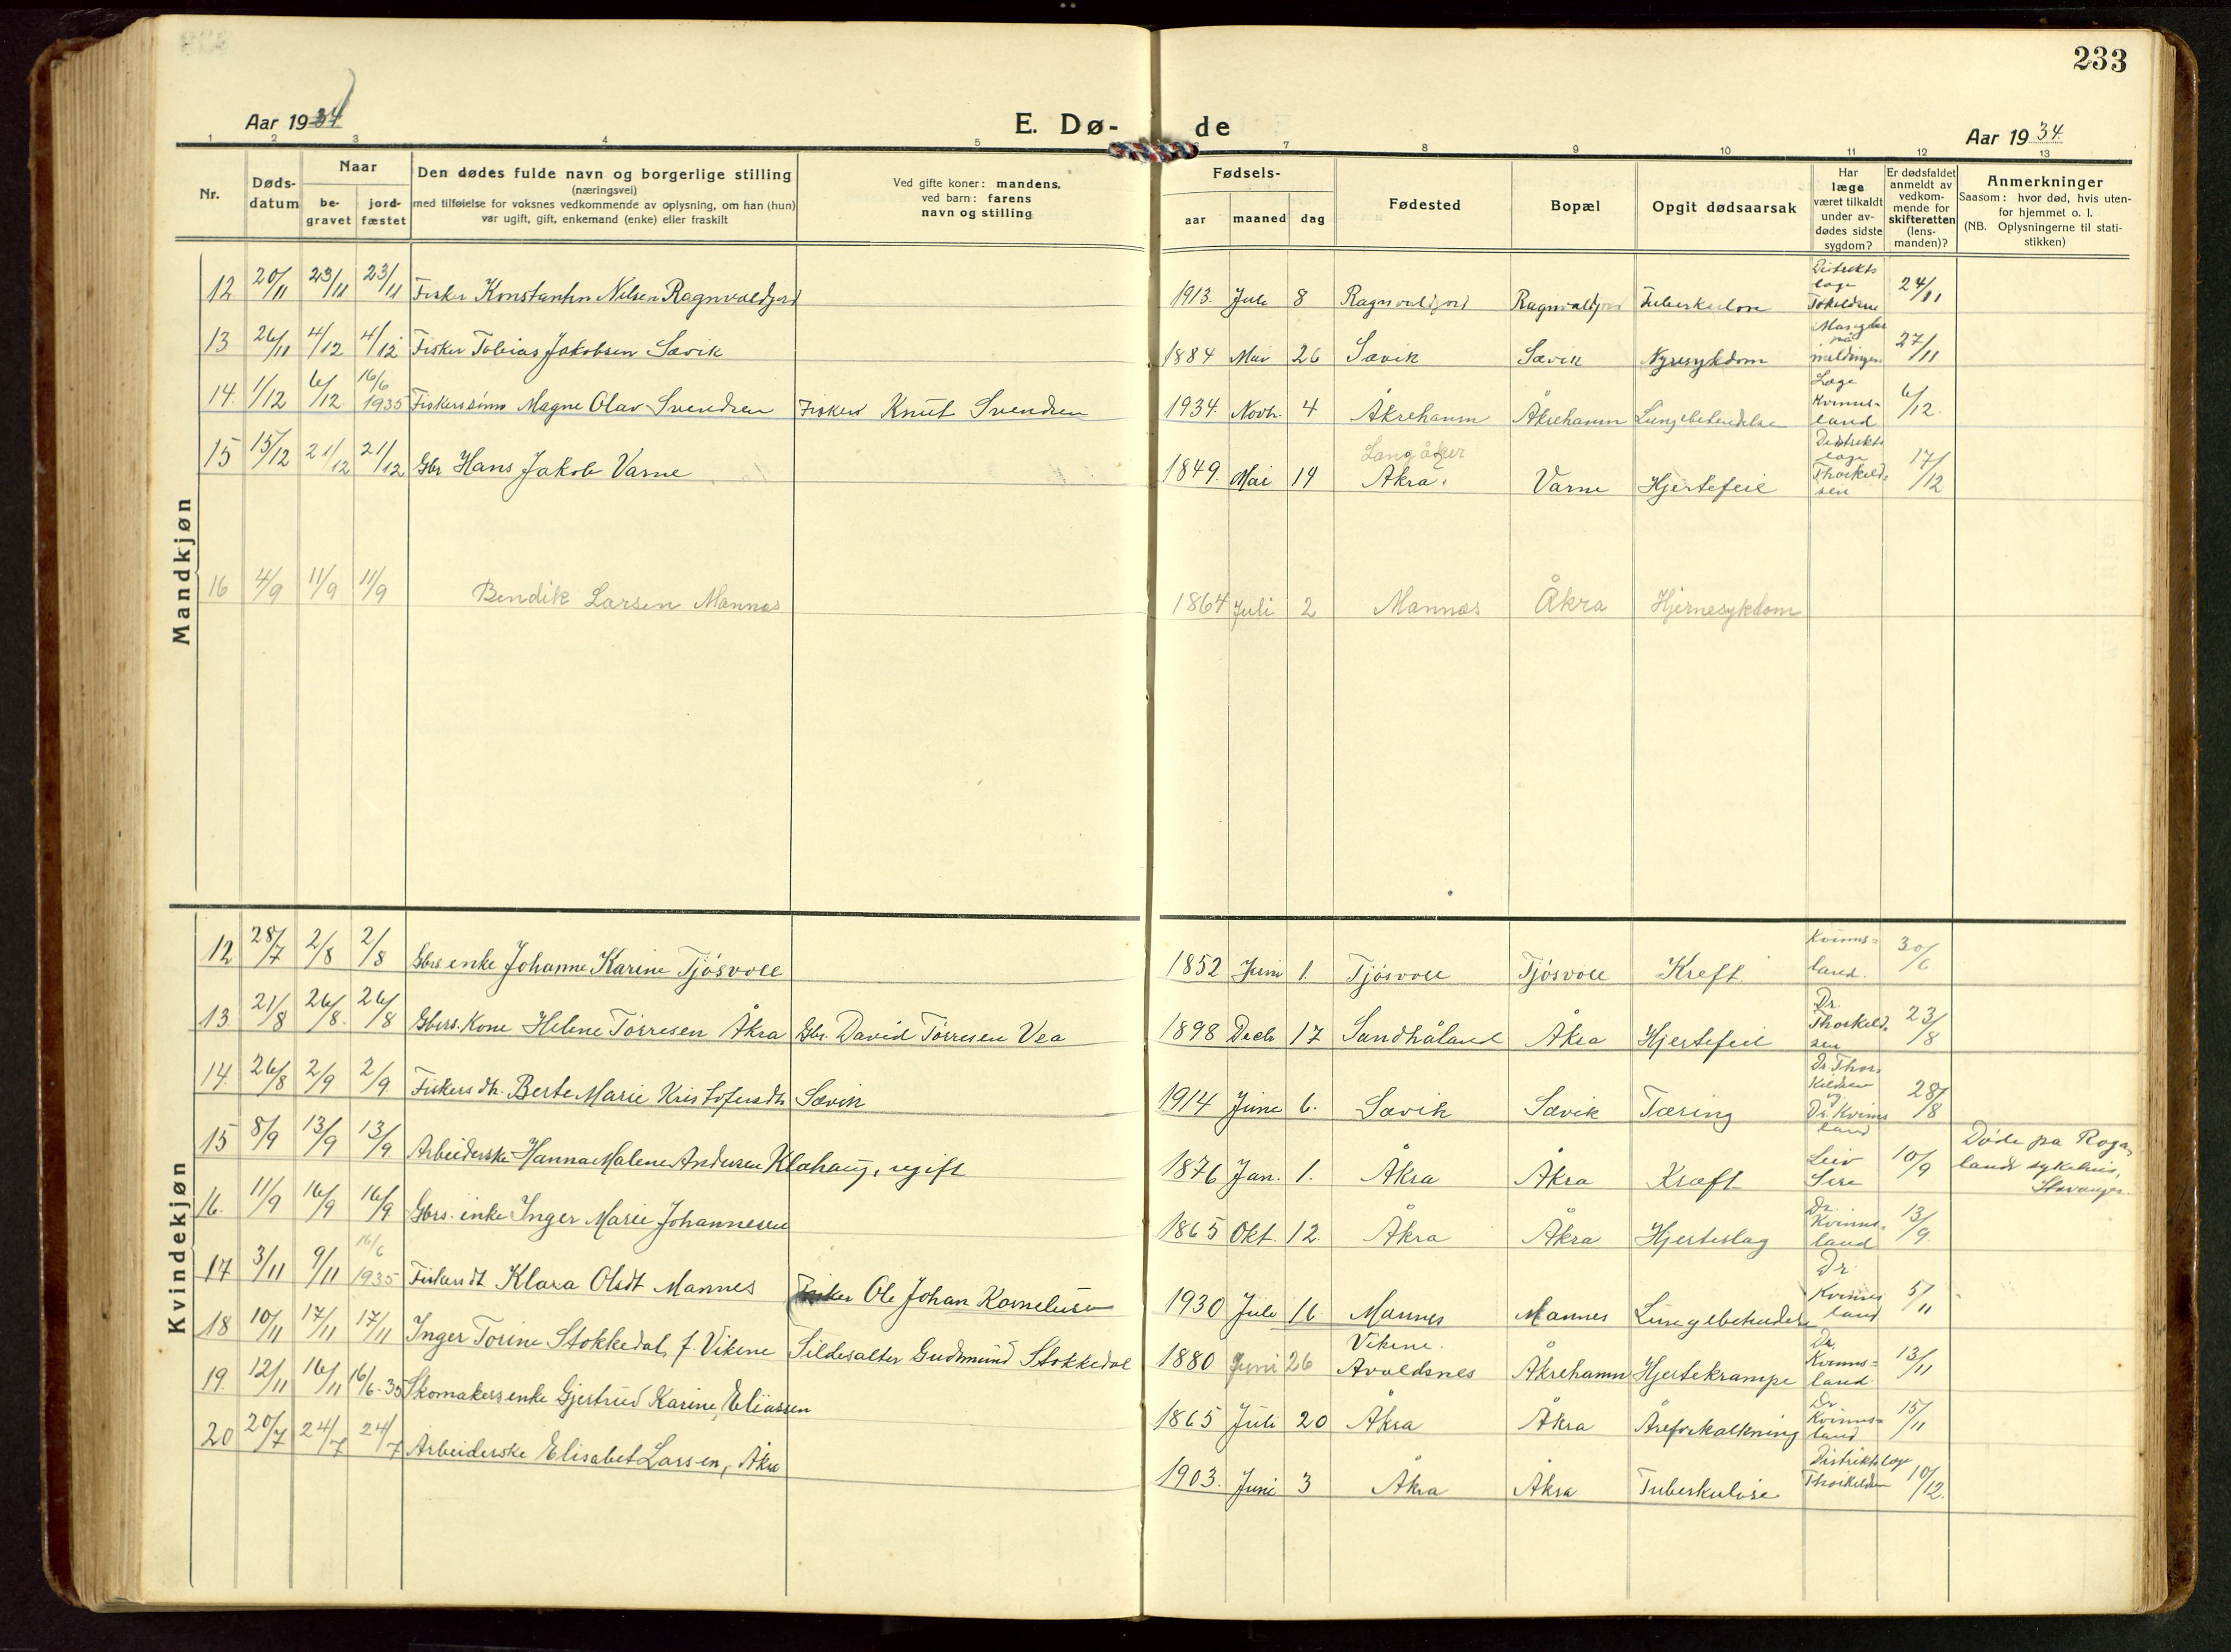 233
Aar 1934
E. Dø-
de
Aar 1934.
1 2 3 4 5 7 8 9 10 11 12 13
Nr.
Døds-
datum
Naar
be-
gravet
jord-
fæstet
Den dødes fulde navn og borgerlige stilling
(næringsvei)
med tilføielse for voksnes vedkommende av oplysning, om han (hun)
var ugift, gift, enkemand (enke) eller fraskilt
Ved gifte koner: mandens,
ved barn: farens
navn og stilling
Fødsels-
aar maaned dag
Fødested
Bopæl
Opgit dødsaarsak
Har
læge
været tilkaldt
under av-
dødes sidste
sygdom?
Er dødsfaldet
anmeldt av
vedkom-
mende for
skifteretten
(lens-
manden)?
Anmerkninger
Saasom: hvor død, hvis uten-
for hjemmet o. l.
(NB. Oplysningerne til stati-
stikken)
Mandkjøn
12 20/11 23/11 23/11 Fisker Konstantin Nilsen Ragnvaldjord 1913. Juli 8 Ragnvaldjord Ragnvaldjord Tuberkulose Distrikts læge 24/11
13 26/11 4/12 4/12 Fisker Tobias Jakobsen Sævik 1884 Mai 26 Sævik Sævik Nyresykdom Mangler på meldingen 27/11
14. 1/12 6/12. 16/6 1935 Fiskerssønn Magne Olav Svendsen Fisker Knut Svendsen 1934. Novb. 4 Åkrehamn Åkrehamn Lungebetendelse Læge Kvinnsland 6/12.
15 15/12 21/12 21/12 Gbr Hans Jakob Varne 1849. Mai 14 Langåker Åkra. Varne Hjertefeil Distrikts læge Thorkildsen 17/12
16 4/9 11/9 11/9 Bendik Larsen Mannes 1864 Juli 2 Mannes Åkra Hjernesykdom
Kvindekjøn
12 28/7 2/8 2/8 Gbrs enke Johanne Karine Tjøsvoll 1852 Juni 1. Tjøsvoll Tjøsvoll Kreft Kvinnsland. 30/6
13 21/8 26/8. 26/8 Gbrs. Kone Helene Tørresen Åkra Gbr. David Tørresen Vea 1898 Decb 17 Sandhåland Åkra Hjertefeil Dr. Thorkildsen 23/8
14. 26/8 2/9 2/9 Fiskers dt. Berte Marie Kristofersdt Sævik 1914 June 6. Sævik Sævik Tæring Dr. Thorkildsen og Dr. Kvinnsland 28/8
15 8/9 13/9 13/9 Arbeiderske Hanna Malene Andersen Klahaug, ugift 1876 Jan. 1. Åkra Åkra Kræft Leiv Sire 10/9 Døde pa Rogalands sykehus, Stavanger.
16. 11/9 16/9 16/9 Gbrs. enke Inger Marie Johannesen 1865 Okt. 12. Åkra Åkra Hjerteslag Dr. Kvinnsland 13/9.
17 3/11 9/11 16/6 1935 Fiskers dt Klara Olsdt Mannes Fisker Ole Johan Korneliusen 1930 Juli 16 Mannes Mannes Lungebetendelse Dr Kvinnsland 5/11
18 10/11 17/11 17/11 Inger Torine Stokkedal, f. Vikene Sildesalter Gudmund Stokkedal 1880 Juni 26 Vikene. Avaldsnes Åkrehamn Hjertekrampe Dr. Kvinnsland. 13/11
19. 12/11 16/11 16/6-35 Skomakers enke Gjertrud Karine Eliassen 1865 Juli 20 Åkra Åkra Åreforkalkning Dr Kvinnsland 15/11
20 20/7 24/7 24/7 Arbeiderske Elisabet Larsen, Åkra 1903. Juni 3 Åkra Åkra Tuberkulose Distriktslæge Thorkildsen 10/12.